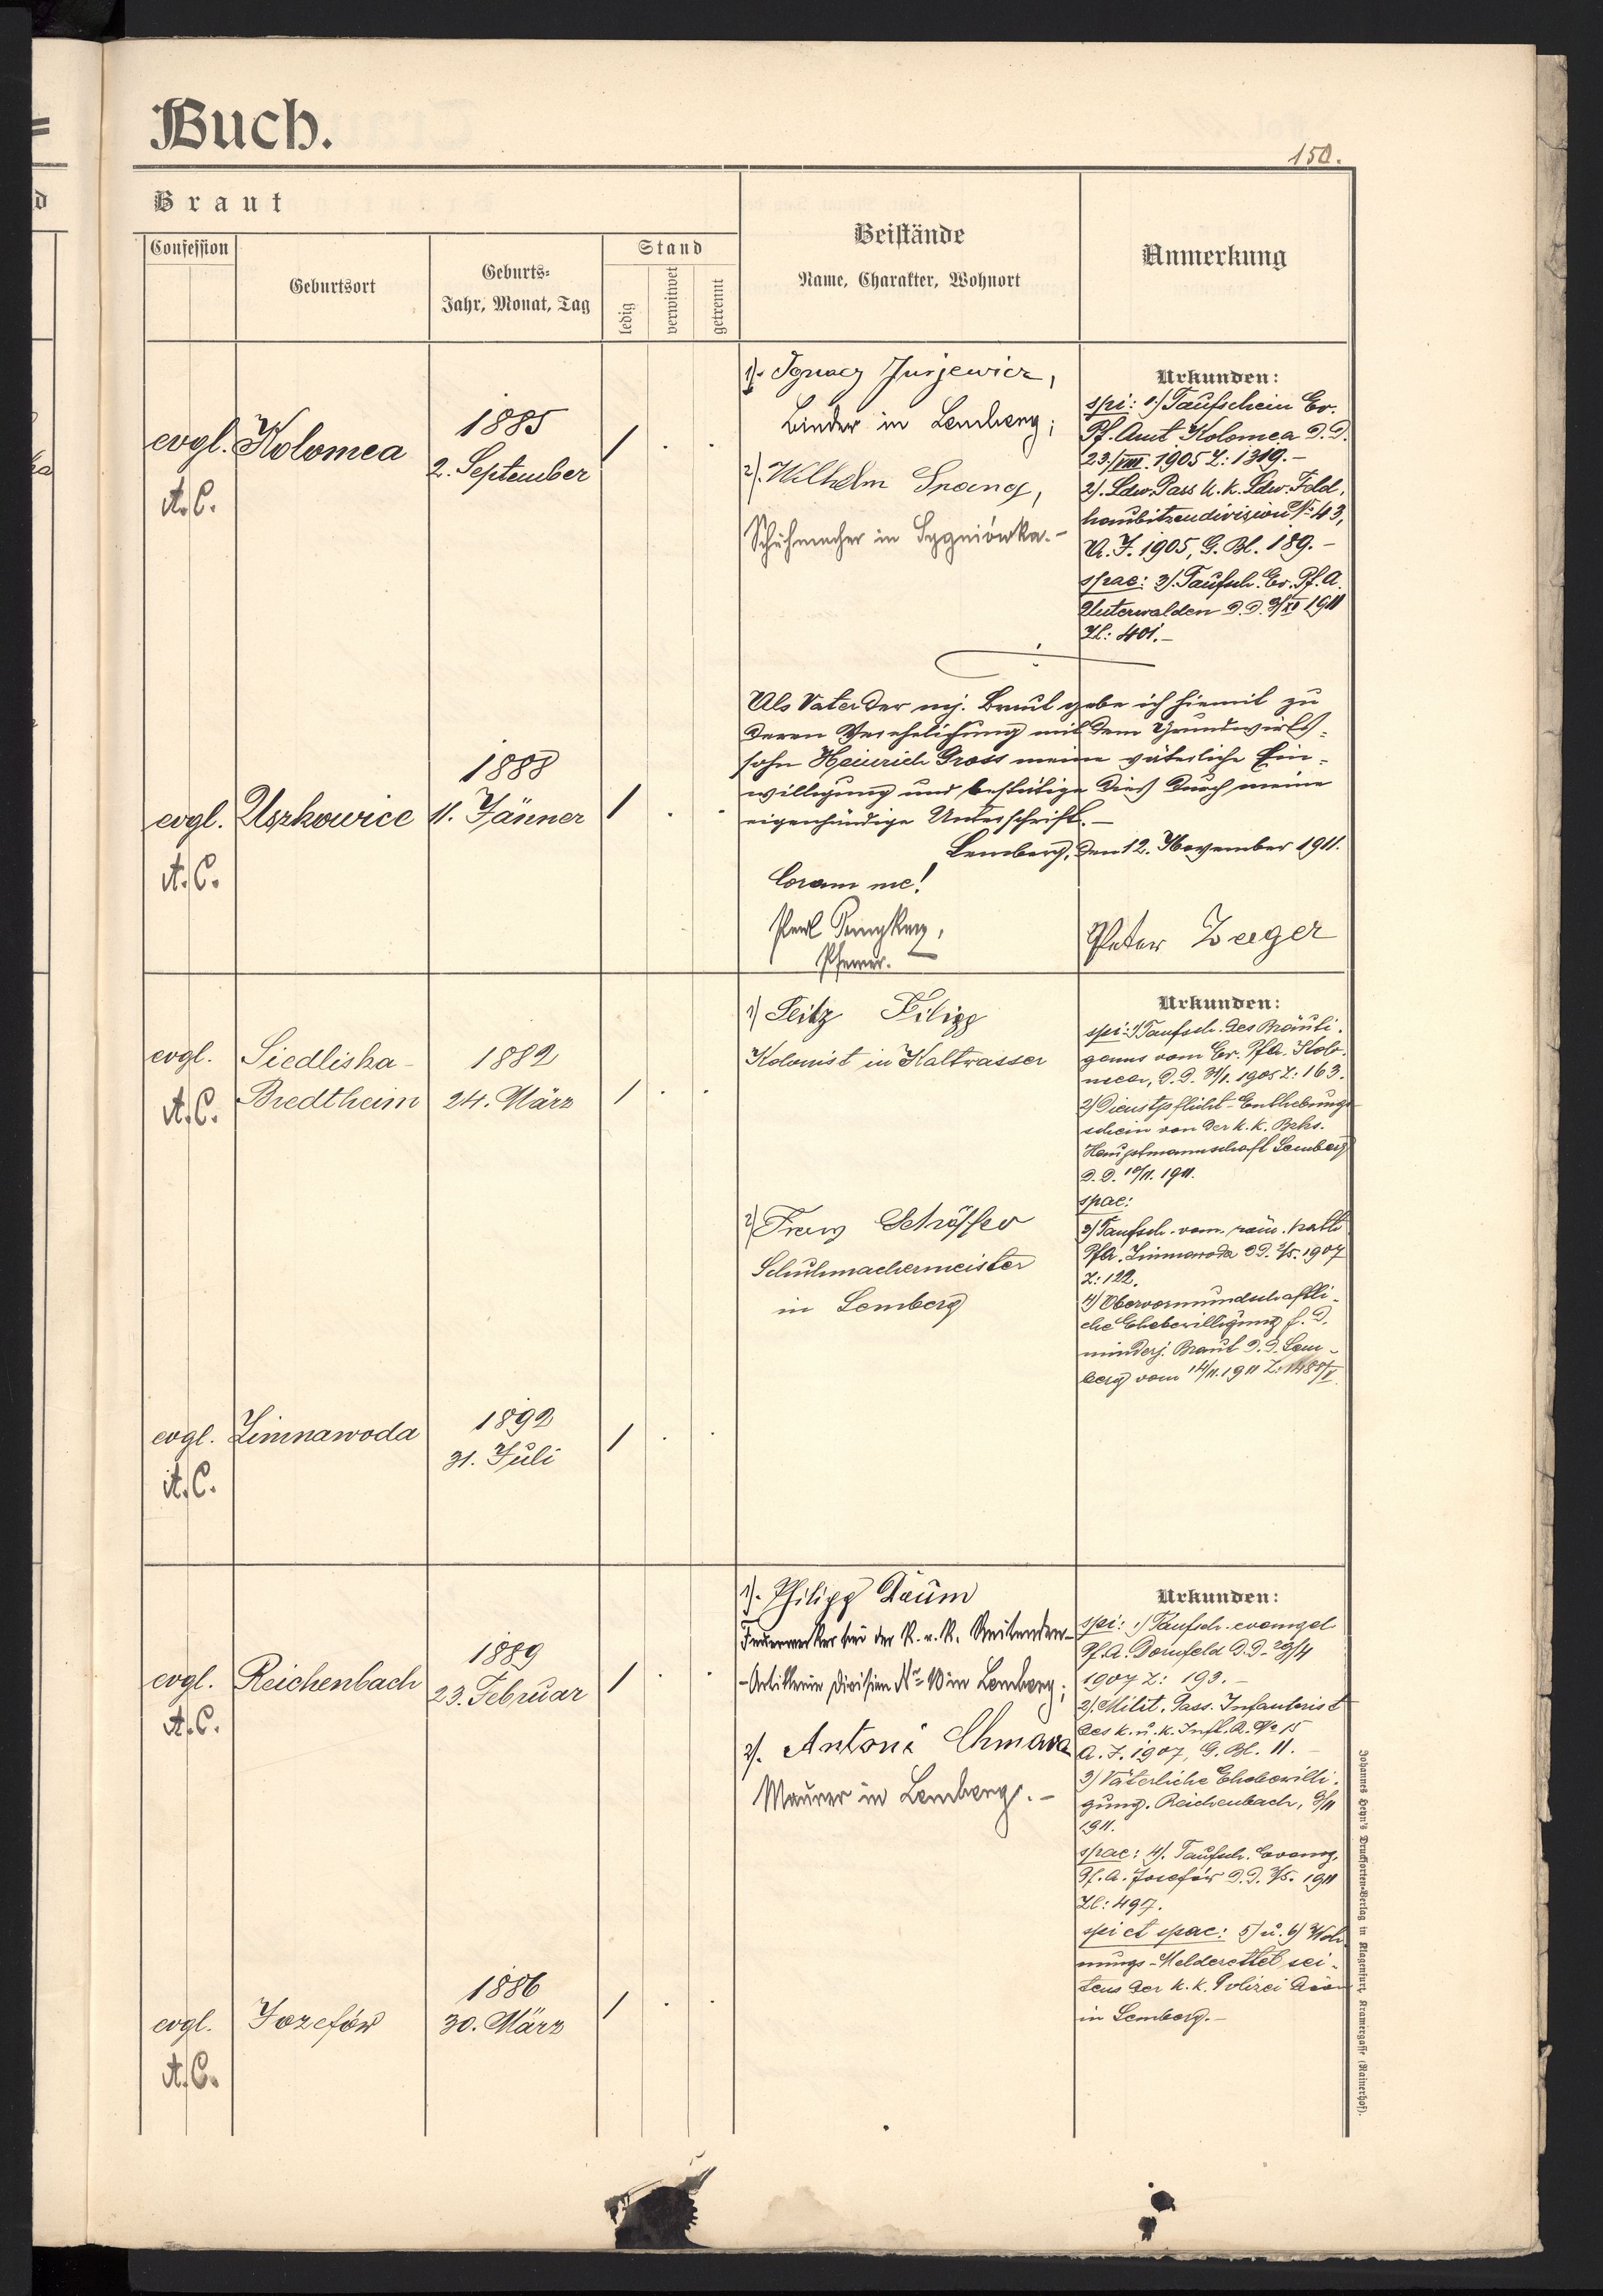 Buch.
150.
Braut
Confession
Geburtsort
Geburts-
Jahr, Monat, Tag
Stand
ledig
verwitwet
getrennt
Beistände
Name, Charakter, Wohnort
Anmerkung
evgl. Kolomea
A.C.
1885
2. September
/ . .
1). Ignacz Jurjewicz,
Binder in Lemberg;
2). Wilhelm Spang,
Schuhmacher in Sygniówka.-
Urkunden:
spi: 1.) Taufschein Ev.
Pf. Amt Kolomea d.d.
23./VIII. 1905 Z: 1319.-
2). Ldw. Pass k.k. Ldw. Feld.
haubitzendivision No 43,
A. J. 1905, G. Bl. 189.-
spae: 3). Taufsch. Ev. Pf. A.
Unterwalden d.d. 3/XI 1911
Zl: 401.-
evgl. Uszkowice
A.C.
1888
11. Jänner
/ . .
Als Vater der mj. Braut gebe ich hiemit zu
deren Verehelichung mit dem Grundwirts-
sohn Heinrich Gross meine väterliche Ein-
willigung und bestätige dies durch meine
eigenhändige Unterschrift.-
Lemberg, den 12. November 1911.
Coram me!
Pfarrer.
Peter Zeeger
evgl.
A.C.
Siedliska-
Bredtheim
1882
24. März
/ . .
1) Seitz Filipp
Kolonist in Kaltwasser
2) Franz Schöffer
Schuhmachermeister
in Lemberg
Urkunden:
spi: 1) Taufsch. des Bräuti-
gams vom Ev. Pfa. Kolo-
meea, d.d. 31/1. 1905 Z: 163.
2) Dienstpflicht-Enthebungs-
schein von der k.k. Bzks.
Hauptmannschaft Lemberg
d.d. 10/11. 1911.
spae:
3) Taufsch. vom röm. kath
Pfa. Zimnawoda dd. 3/5. 1907
Z: 122.
4) Obervormundschaftli-
che Ehebewilligung f. d.
minderj. Braut d.d. Lem-
berg vom 14/11. 1911
evgl. Zimnawoda
A.C.
1892
31. Juli
/ . .
evgl. Reichenbach
A.C.
1889
23. Februar
/ . .
1). Philipp Daum
Feuerwerker bei der k. u. k. Reitenden-
-Artillerie Division No 10 in Lemberg;
2). Antoni Chmara
Maurer in Lemberg.-
Urkunden:
spi: 1) Taufsch. evangel
Pf. A. Dornfeld d.d. 29/4
1907 Z: 193.-
2). Milit. Pass. Infanterist
des k. u. k. Inft. R. No 15
A. J. 1907, G. Bl. 11.-
3) Väterliche Ehebewilli-
gung. Reichenbach, 9/11
1911.
spae: 4). Taufsch. Evang.
Pf. A. Josefów d.d. 3/5. 1911
Zl: 497.
spi et spae: 5) u. 6) Woh
nungs-Meldezettel sei-
tens der k.k. Polizei
in Lemberg.-
evgl. Jozefów
A.C.
1886
30. März
/ . .
Johannes Heyn's Drucksorten-Verlag in Klagenfurt, Kramergasse (Rainerhof).